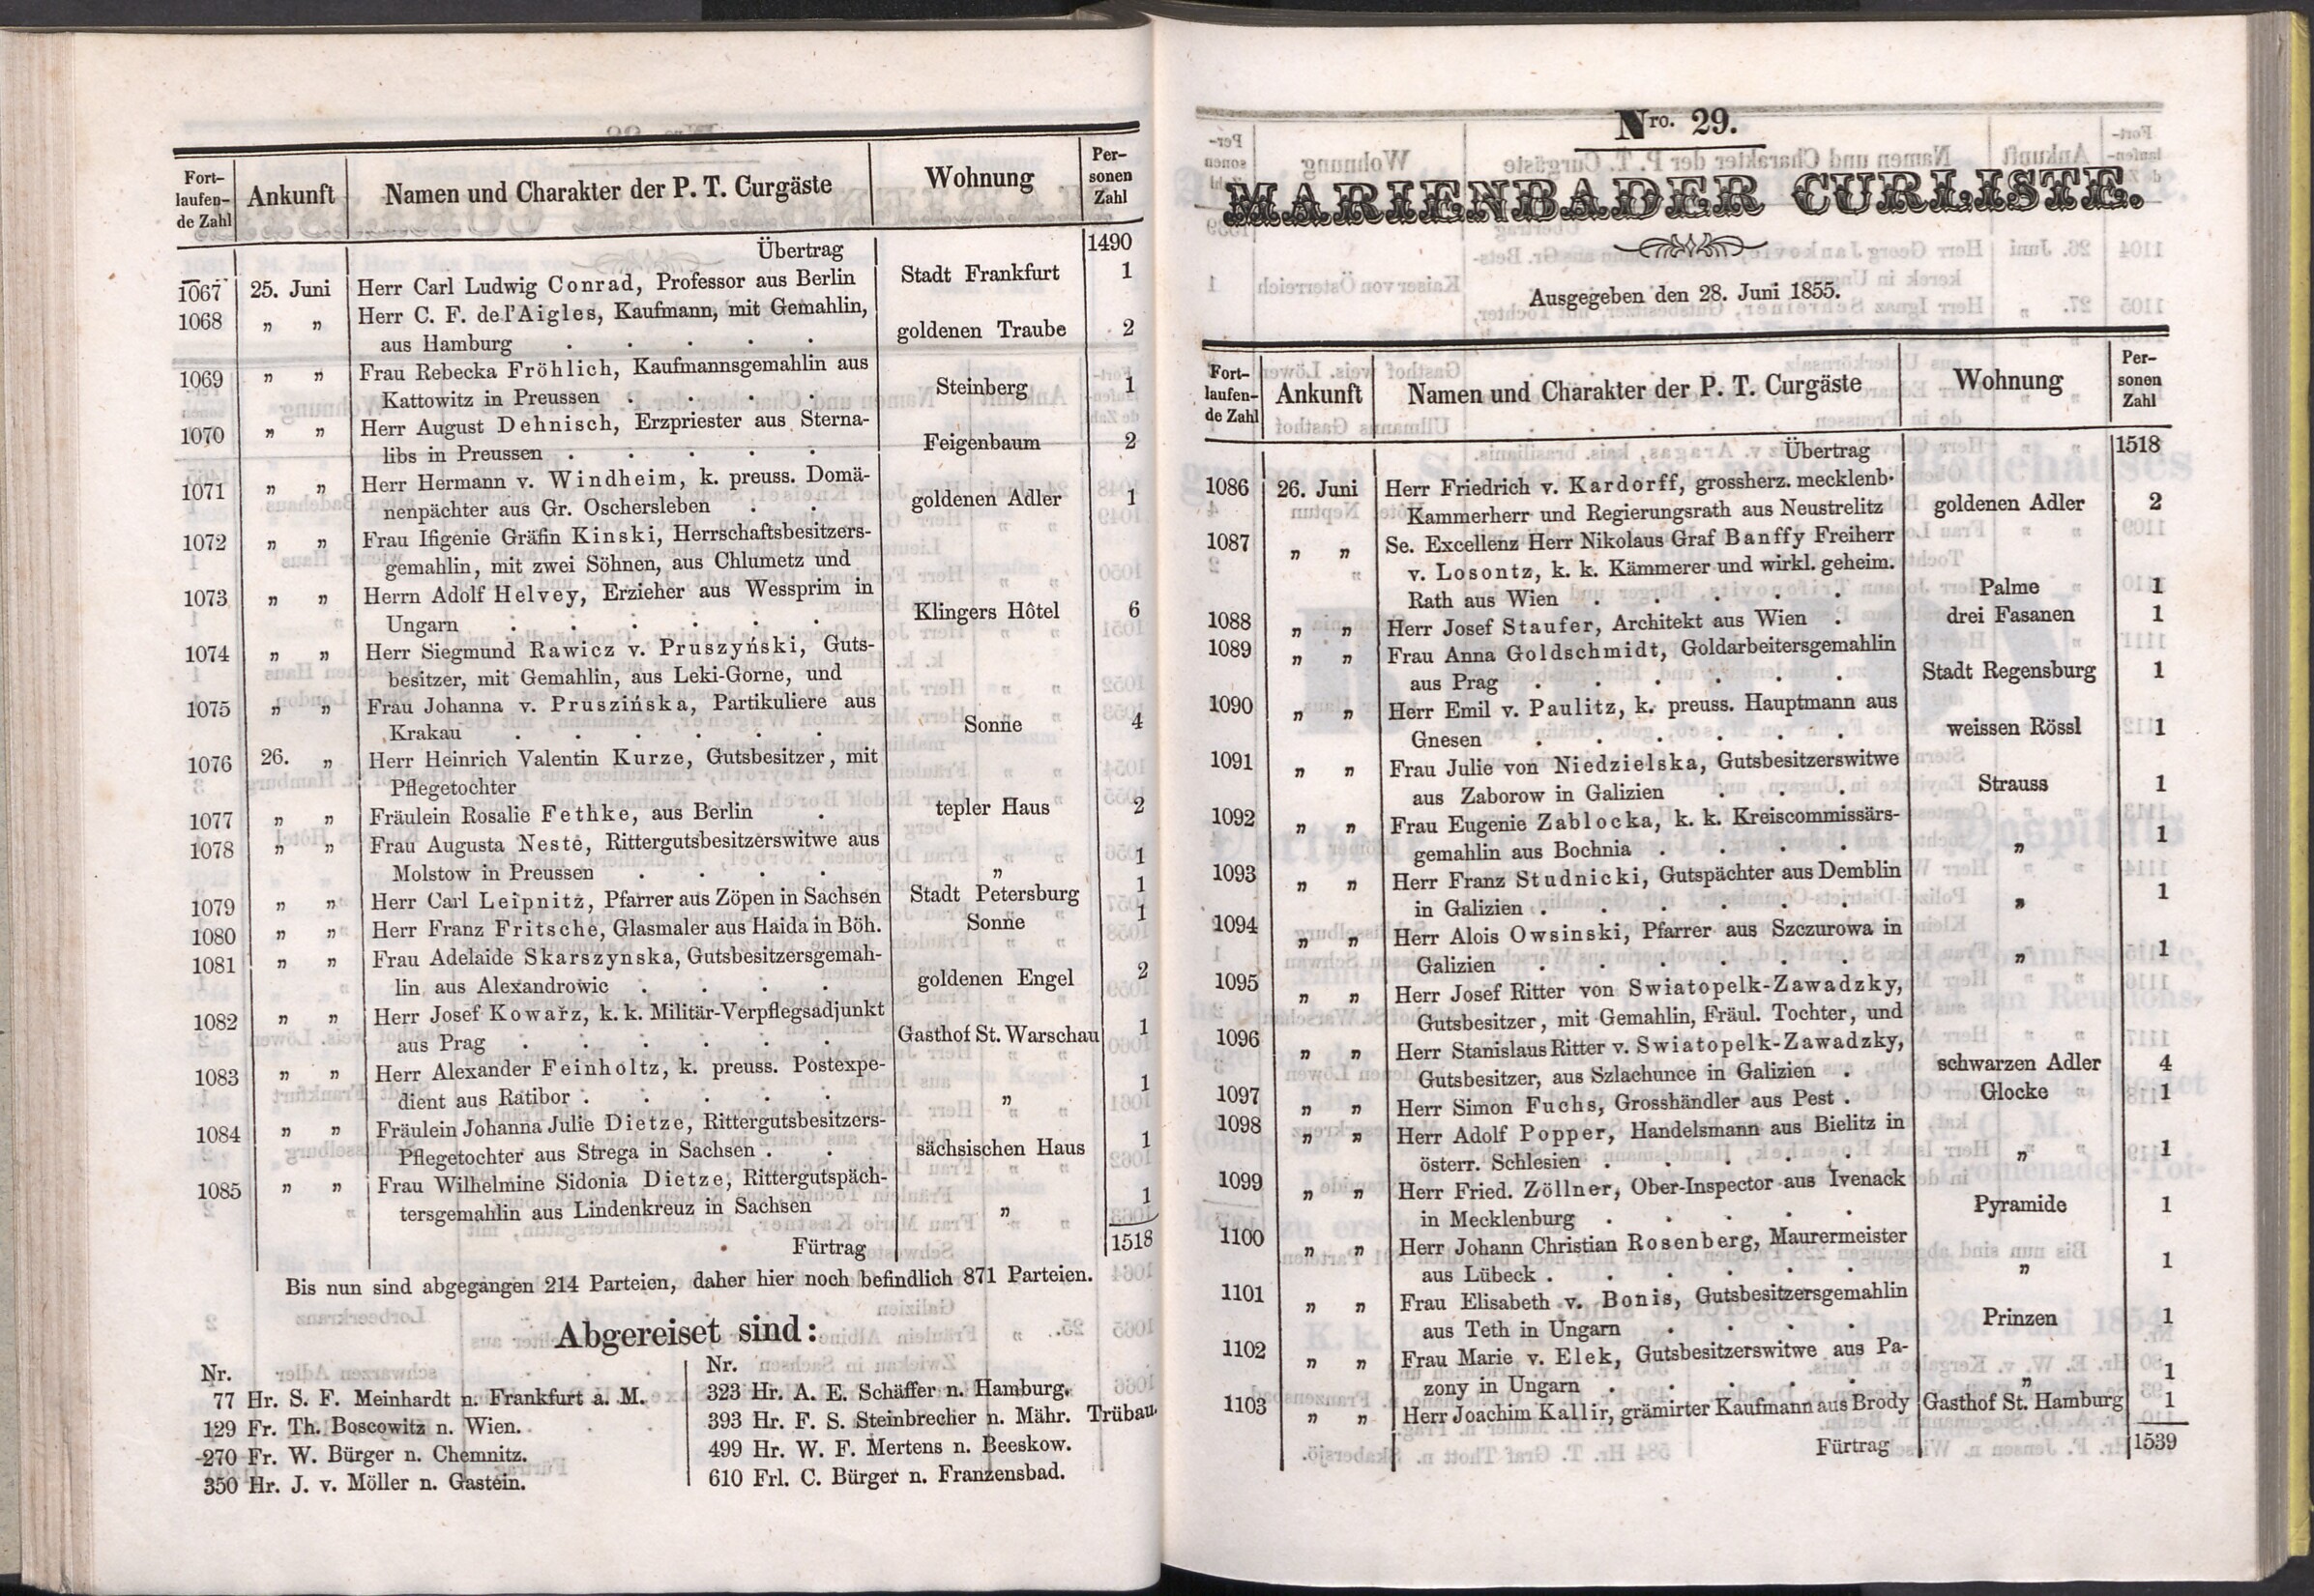 Fort-
laufen-
de Zahl | Ankunft | Namen und Charakter der P. T. Curgäste | Wohnung | Per-
sonen
Zahl
Übertrag 1490
1067 25. Juni Herr Carl Ludwig Conrad, Professor aus Berlin Stadt Frankfurt 1
1068 „ „ Herr C. F. de l'Aigles, Kaufmann, mit Gemahlin,
aus Hamburg . . . . . goldenen Traube 2
1069 „ „ Frau Rebecka Fröhlich, Kaufmannsgemahlin aus
Kattowitz in Preussen . . . . Steinberg 1
1070 „ „ Herr August Dehnisch, Erzpriester aus Sterna-
libs in Preussen . . . . . Feigenbaum 2
1071 „ „ Herr Hermann v. Windheim, k. preuss. Domä-
nenpächter aus Gr. Oschersleben . . goldenen Adler 1
1072 „ „ Frau Ifigenie Gräfin Kinski, Herrschaftsbesitzers-
gemahlin, mit zwei Söhnen, aus Chlumetz und
1073 „ „ Herrn Adolf Helvey, Erzieher aus Wessprim in
Ungarn . . . . . . Klingers Hôtel 6
1074 „ „ Herr Siegmund Rawicz v. Pruszyński, Guts-
besitzer, mit Gemahlin, aus Leki-Gorne, und
1075 „ „ Frau Johanna v. Pruszińska, Partikuliere aus
Krakau . . . . . . Sonne 4
1076 26. „ Herr Heinrich Valentin Kurze, Gutsbesitzer, mit
Pflegetochter
1077 „ „ Fräulein Rosalie Fethke, aus Berlin . tepler Haus 2
1078 „ „ Frau Augusta Neste, Rittergutsbesitzerswitwe aus
Molstow in Preussen . . . . „ 1
1079 „ „ Herr Carl Leipnitz, Pfarrer aus Zöpen in Sachsen Stadt Petersburg 1
1080 „ „ Herr Franz Fritsche, Glasmaler aus Haida in Böh. Sonne 1
1081 „ „ Frau Adelaide Skarszynska, Gutsbesitzersgemah-
lin aus Alexandrowic . . . . goldenen Engel 2
1082 „ „ Herr Josef Kowařz, k. k. Militär-Verpflegsadjunkt
aus Prag . . . . . . Gasthof St. Warschau 1
1083 „ „ Herr Alexander Feinholtz, k. preuss. Postexpe-
dient aus Ratibor . . . . . „ 1
1084 „ „ Fräulein Johanna Julie Dietze, Rittergutsbesitzers-
Pflegetochter aus Strega in Sachsen . . sächsischen Haus 1
1085 „ „ Frau Wilhelmine Sidonia Dietze, Rittergutspäch-
tersgemahlin aus Lindenkreuz in Sachsen „ 1
Fürtrag 1518
Bis nun sind abgegangen 214 Parteien, daher hier noch befindlich 871 Parteien.
Abgereiset sind:
Nr.
77 Hr. S. F. Meinhardt n. Frankfurt a. M.
129 Fr. Th. Boscowitz n. Wien.
270 Fr. W. Bürger n. Chemnitz.
350 Hr. J. v. Möller n. Gastein.
Nr.
323 Hr. A. E. Schäffer n. Hamburg.
393 Hr. F. S. Steinbrecher n. Mähr. Trübau.
499 Hr. W. F. Mertens n. Beeskow.
610 Frl. C. Bürger n. Franzensbad.
Nro. 29.
MARIENBADER CURLISTE.
Ausgegeben den 28. Juni 1855.
Fort-
laufen-
de Zahl | Ankunft | Namen und Charakter der P. T. Curgäste | Wohnung | Per-
sonen
Zahl
Übertrag 1518
1086 26. Juni Herr Friedrich v. Kardorff, grossherz. mecklenb.
Kammerherr und Regierungsrath aus Neustrelitz goldenen Adler 2
1087 „ „ Se. Excellenz Herr Nikolaus Graf Banffy Freiherr
v. Losontz, k. k. Kämmerer und wirkl. geheim.
Rath aus Wien . . . . . Palme 1
1088 „ „ Herr Josef Staufer, Architekt aus Wien . drei Fasanen 1
1089 „ „ Frau Anna Goldschmidt, Goldarbeitersgemahlin
aus Prag . . . . . . Stadt Regensburg 1
1090 „ „ Herr Emil v. Paulitz, k. preuss. Hauptmann aus
Gnesen . . . . . . weissen Rössl 1
1091 „ „ Frau Julie von Niedzielska, Gutsbesitzerswitwe
aus Zaborow in Galizien . . . Strauss 1
1092 „ „ Frau Eugenie Zablocka, k. k. Kreiscommissärs-
gemahlin aus Bochnia . . . . „ 1
1093 „ „ Herr Franz Studnicki, Gutspächter aus Demblin
in Galizien . . . . . . „ 1
1094 „ „ Herr Alois Owsinski, Pfarrer aus Szczurowa in
Galizien . . . . . . „ 1
1095 „ „ Herr Josef Ritter von Swiatopelk-Zawadzky,
Gutsbesitzer, mit Gemahlin, Fräul. Tochter, und
1096 „ „ Herr Stanislaus Ritter v. Swiatopelk-Zawadzky,
Gutsbesitzer, aus Szlachunce in Galizien . schwarzen Adler 4
1097 „ „ Herr Simon Fuchs, Grosshändler aus Pest . Glocke 1
1098 „ „ Herr Adolf Popper, Handelsmann aus Bielitz in
österr. Schlesien . . . . . „ 1
1099 „ „ Herr Fried. Zöllner, Ober-Inspector aus Ivenack
in Mecklenburg . . . . . Pyramide 1
1100 „ „ Herr Johann Christian Rosenberg, Maurermeister
aus Lübeck . . . . . . „ 1
1101 „ „ Frau Elisabeth v. Bonis, Gutsbesitzersgemahlin
aus Teth in Ungarn . . . . Prinzen 1
1102 „ „ Frau Marie v. Elek, Gutsbesitzerswitwe aus Pa-
zony in Ungarn . . . . . „ 1
1103 „ „ Herr Joachim Kallir, grämirter Kaufmann aus Brody Gasthof St. Hamburg 1
Fürtrag 1539